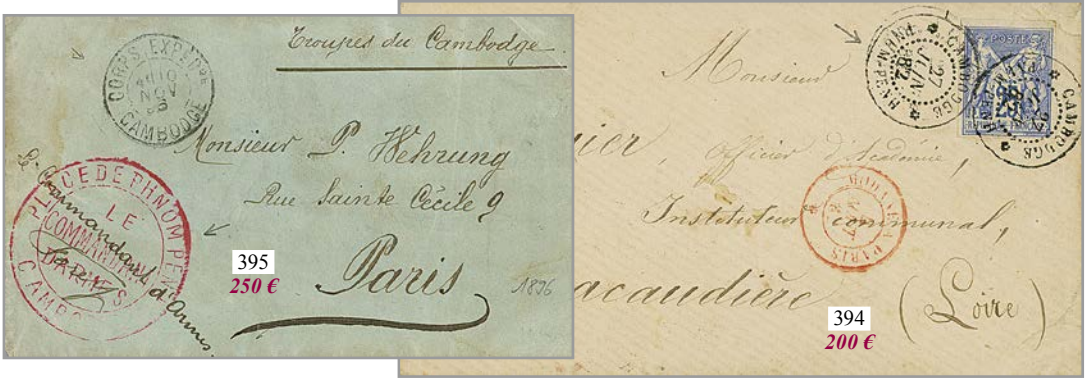 Troupes du Cambodge
CORPS EXPED^RE
10
NOV
CAMBODGE
Monsieur P. Wehrung
Rue Sainte Cécile 9
Paris
1896
PLACE DE PHNOM PENH
LE
COMMANDANT
D'ARMES
CAMBODGE
Le Commandant d'Armes.
395
250 €
Monsieur
CAMBODGE
27
JUIN
82
PNHUM-PENH
POSTE
CAMBODGE
27
Officier d'Académie,
Instituteur communal,
acaudière
(Loire)
PARIS
394
200 €